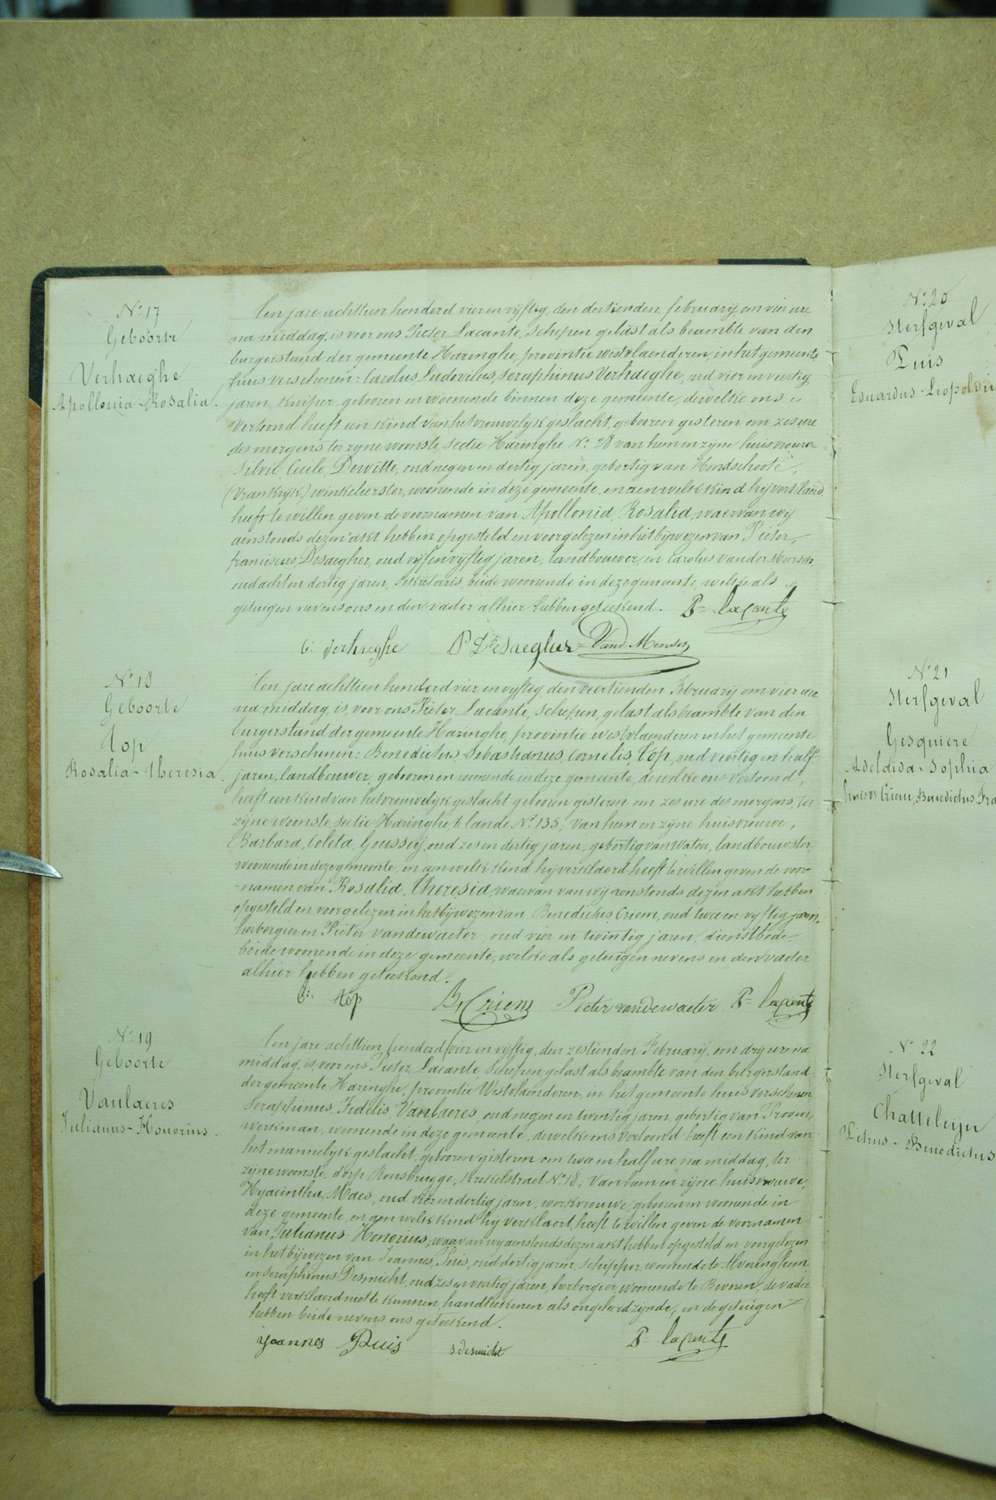 N° 17
Geboorte
Verhaeghe
Apollonia-Rosalia.
Een jare achttien honderd vier en vyftig, den dertienden february om vier ure
na middag, is voor ons Pieter Lacante, Schepen gelast als beambte van den
burgerstand der gemeente Haringhe, provintie westvlaenderen, in het gemeente
huis verschenen: Carolus Ludovicus, Seraphinus Verhaeghe, oud vier en veertig
jaren, kuiper, geboren en woonende binnen deze gemeente, dewelke ons
vertoond heeft een kind van het vrouwelyk geslacht, geboren gisteren om zes ure
des morgens ter zyne woonste, sectie Haringhe N° 28 van hem en zyne huisvrouw
Silvie Cecile Dewitte, oud negen en dertig jaren, gebortig van Hondschoote
(Vrankryk) winkelierster, woonende in deze gemeente, en aen welk kind hy verklaard
heeft te willen geven de voornamen van Apollonia, Rosalia, waervan wy
aenstonds dezen akt hebben opgesteld en voorgelezen in het bywezen van Pieter,
franciscus Desaegher, oud vyf en vyftig jaren, landbouwer, en Carolus vander Meersch
oud acht en dertig jaren, Sekretaris beide woonende in deze gemeente, welke als
getuigen nevens ons en den vader alhier hebben geteekend. P= Lacante
C: Verhaeghe P D= Desaegher Vand Meersch
N° 18
Geboorte
Top
Rosalia-Theresia
Een jare achttien honderd vier en vyftig den veertienden February om vier ure
na middag, is, voor ons Pieter Lacante, Schepen, gelast als beambte van den
burgerstand der gemeente Haringhe, provintie westvlaenderen in het gemeente
huis verschenen: Benedictus Sebastianus, Cornelis, Top, oud veertig en half
jaren, landbouwer, geboren en woonende in deze gemeente, dewelke ons vertoond,
heeft een kind van het vrouwelyk geslacht geboren gisteren om zes ure des morgens, ter
zyne woonste, sectie Haringhe te lande N° 135, van hem en zyne huisvrouwe,
Barbara, Coleta, Goussey, oud zes en dertig jaren, gebortig van Watou, landbouwster
woonende in deze gemeente, en aen welk kind hy verklaerd heeft te willen geven de voor-
-namen van Rosalia, Theresia, waervan van wy aenstonds dezen akt hebben
opgesteld en voorgelezen in het bywezen van Benedictus Criem, oud twee en vyftig jaren,
herbergier en Pieter vandewaeter, oud vier en twintig jaren, dienstbode
beide woonende in deze gemeente, welke als getuigen nevens en den vader
alhier hebben geteekend.
B: Top B, Criem Pieter vandewaeter P= Lacante
N° 19
Geboorte
Vanlaeres
Julianus-Honorius.
Een jare achttien honderd vier en vyftig, den zestienden February, om dry ure na
middag, is, voor ons Pieter Lacante Schepen gelast als beambte van den burgerstand
der gemeente Haringhe, provintie Westvlaenderen, in het gemeente huis verschenen
Seraphinus, Fedelis Vanlaeres, oud negen en twintig jaren, gebortig van Proven,
werkman, woonende in deze gemeente, dewelke ons vertoond heeft een kind van
het mannelyk geslacht, geboren gisteren om twee en half ure na middag, ter
zyne woonste, dorp Rousbrugge, N° 18, van hem en zyne huisvrouwe,
Hyacintha Maes, oud vier en dertig jaren, werkvrouwe, geboren en woonende in
deze gemeente, en aen welk kind hy verklaert, heeft te willen geven de voornamen
van Julianus-Honorius, waervan wy aenstonds dezen akt hebben opgesteld en voorgelezen
in het bywezen van Joannes, Puis, oud dertig jaren, schipper, woonende te Hoveringhem
en Seraphinus Desmicht, oud zes en veertig jaren, herbergier, woonende te Beveren, de vader
heeft verklaerd niet te kunnen handteekenen als ongeleerd zynde, en de getuigen
hebben beide nevens ons geteekend.
joannes Puis s desmicht P= Lacante
N° 20
Sterfgeval
Puis
Eduardus-Leopoldus
N° 21
Sterfgeval
Gesquiere
Adeldisa-Sophia
Criem, Benedictus Fra
N° 22
Sterfgeval
Chatteleyn
Petrus-Benedictus